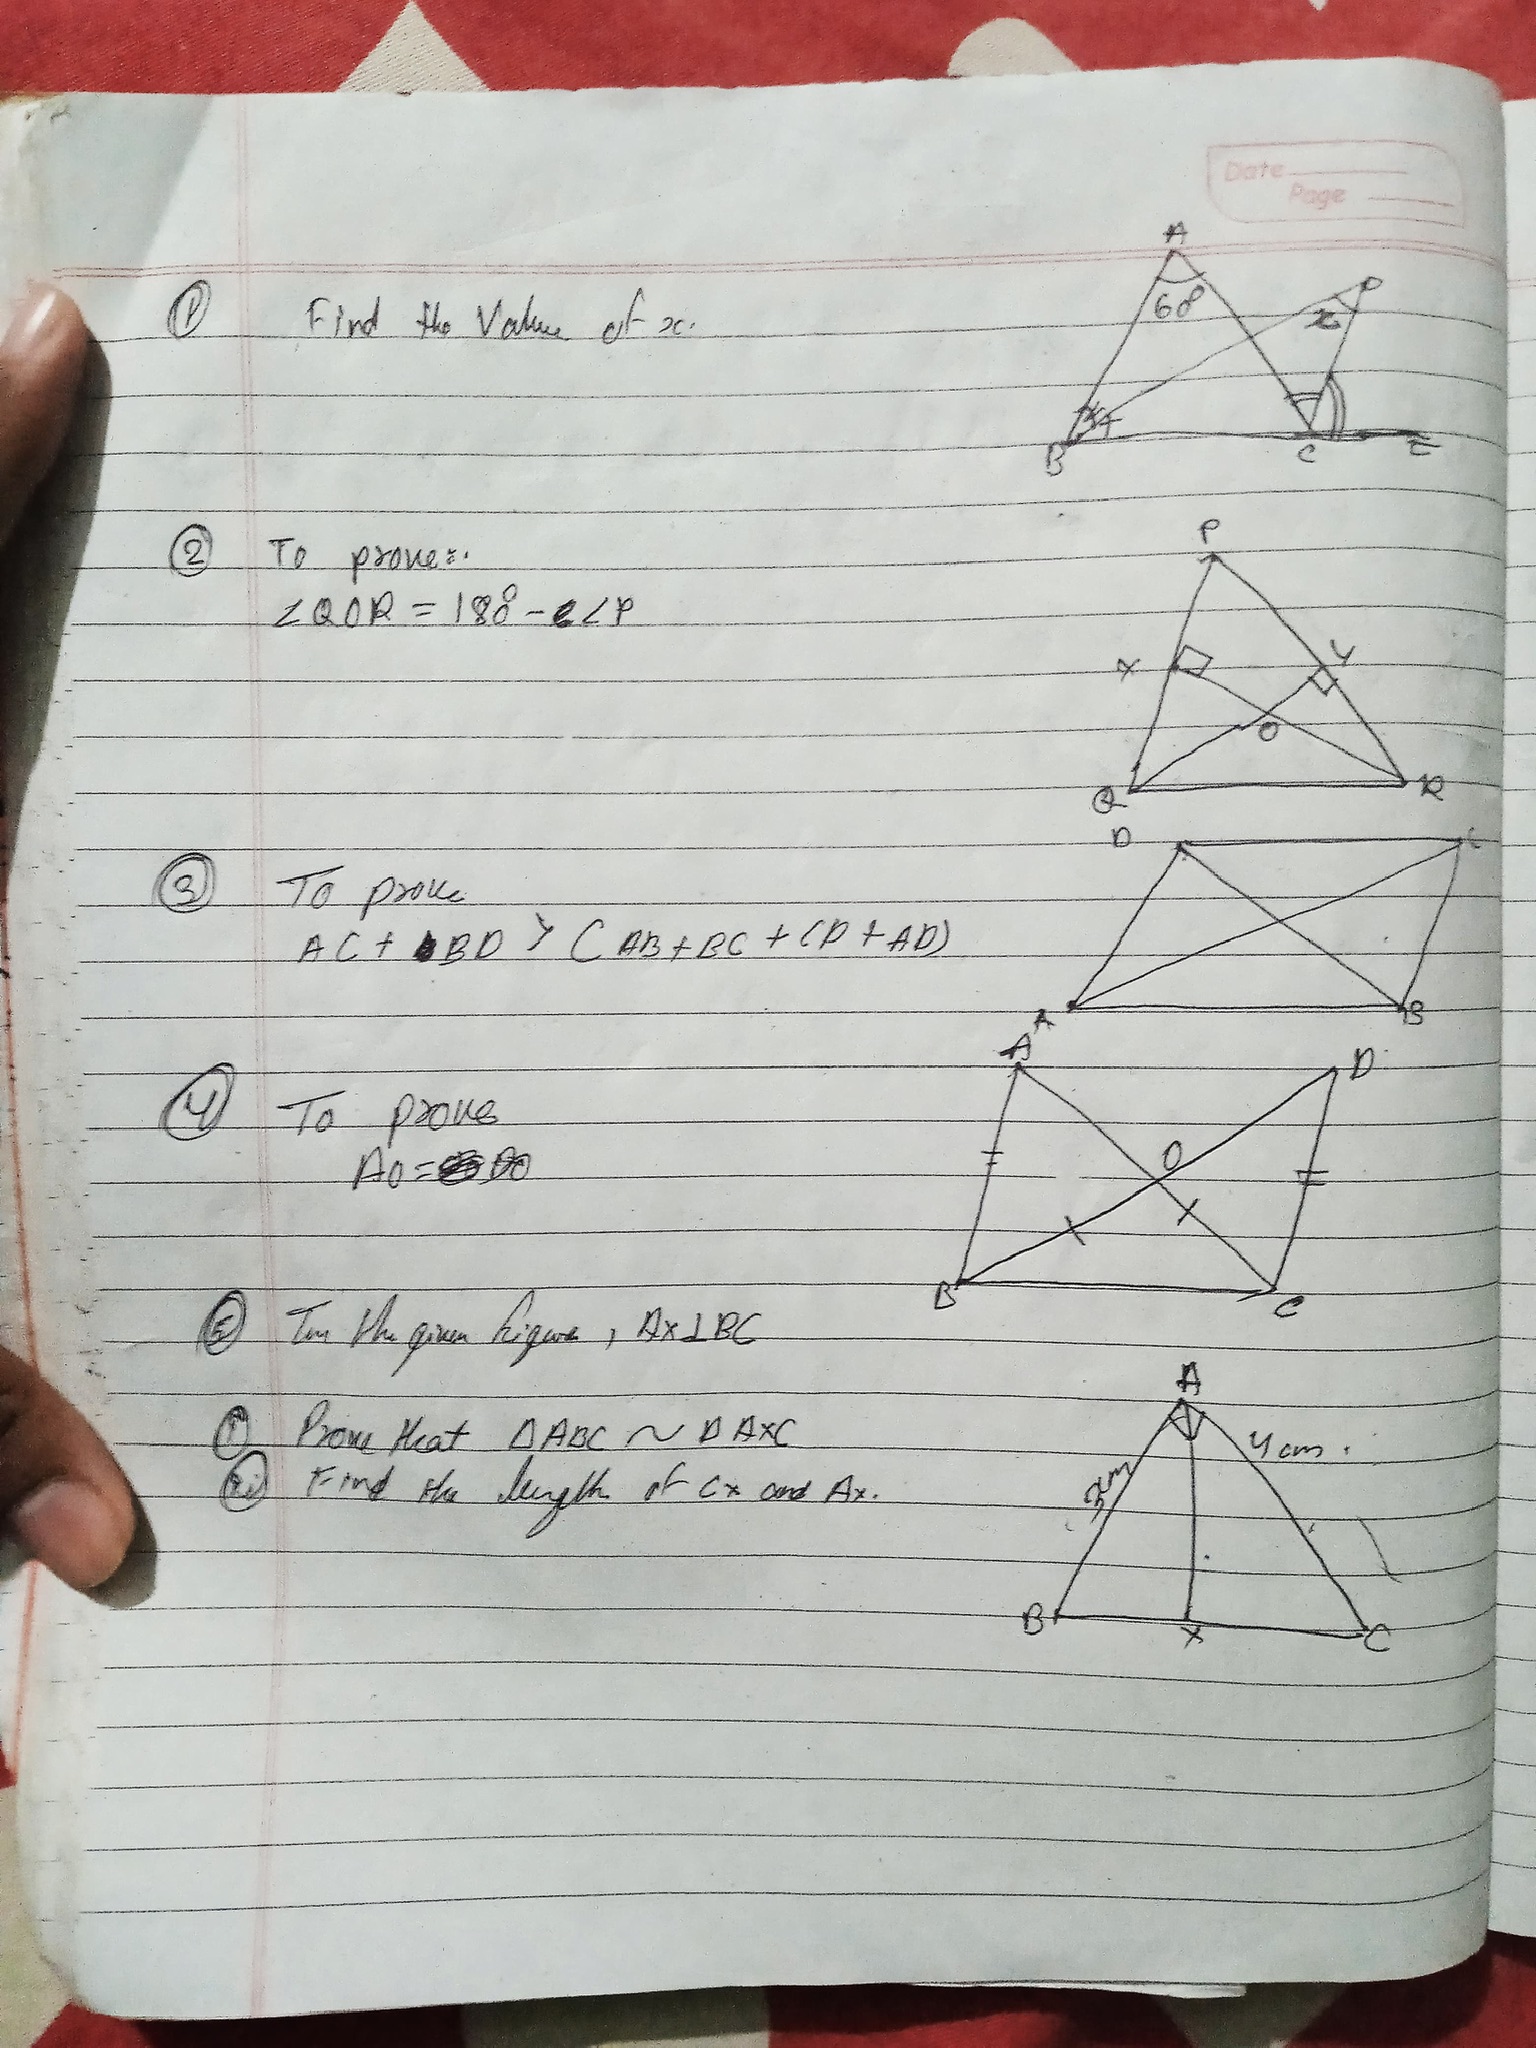 Date
Page
① Find the value of x.
A
60°
D
x
B
C
E
② To prove:.
∠QOR = 180° - ∠P
P
X
Y
O
Q
R
③ To prove
AC + BD > (AB + BC + CD + AD)
D
C
A
B
④ To prove
AO = DO
A
D
O
B
C
⑤ In the given figure, AX⊥BC
① Prove that ΔABC ~ ΔAXC
ii) Find the length of CX and AX.
A
3cm
4cm.
B
X
C